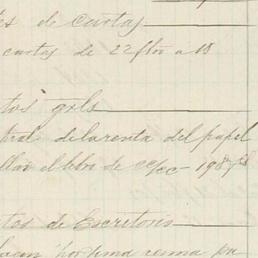 de cartas
cartas de 22 flor a 18
tos grls
tral de la renta del papel
llar el libro de cc/cc 198
tos de Escritorio
por una resma pa